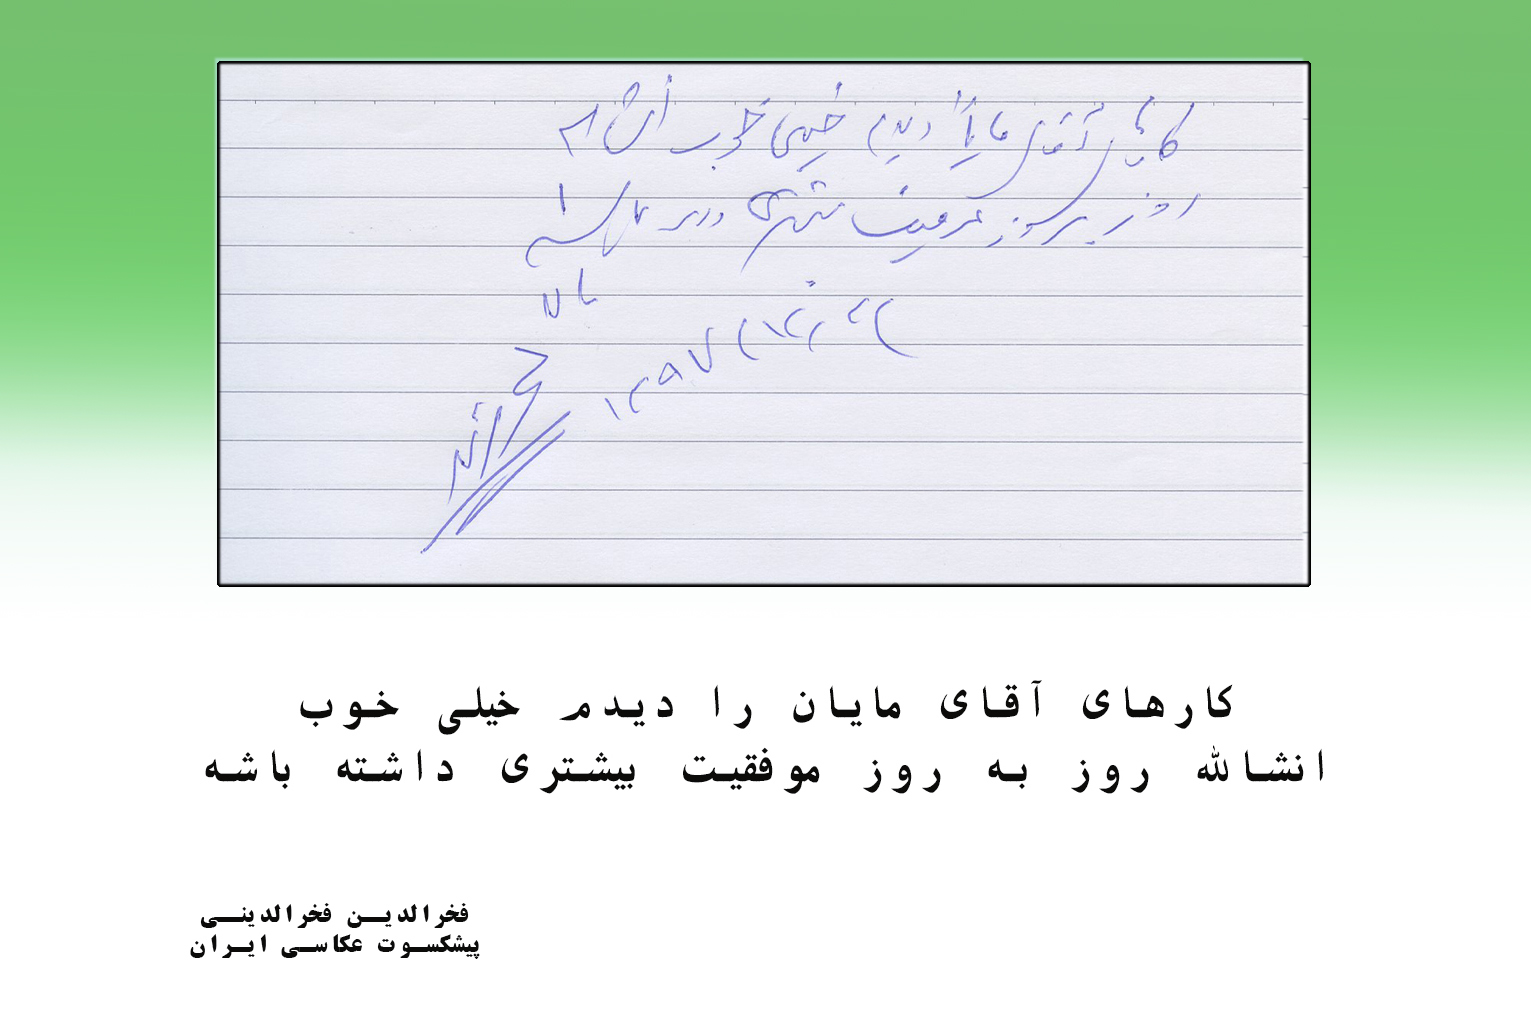 کارهای آقای مایان را دیدم خیلی خوب انشاله
روز بروز موفقیت بیشتری در
۱۳۹۷
کارهای آقای مایان را دیدم خیلی خوب
انشاالله روز به روز موفقیت بیشتری داشته باشه
فخرالدین فخرالدینی
پیشکسوت عکاسی ایران